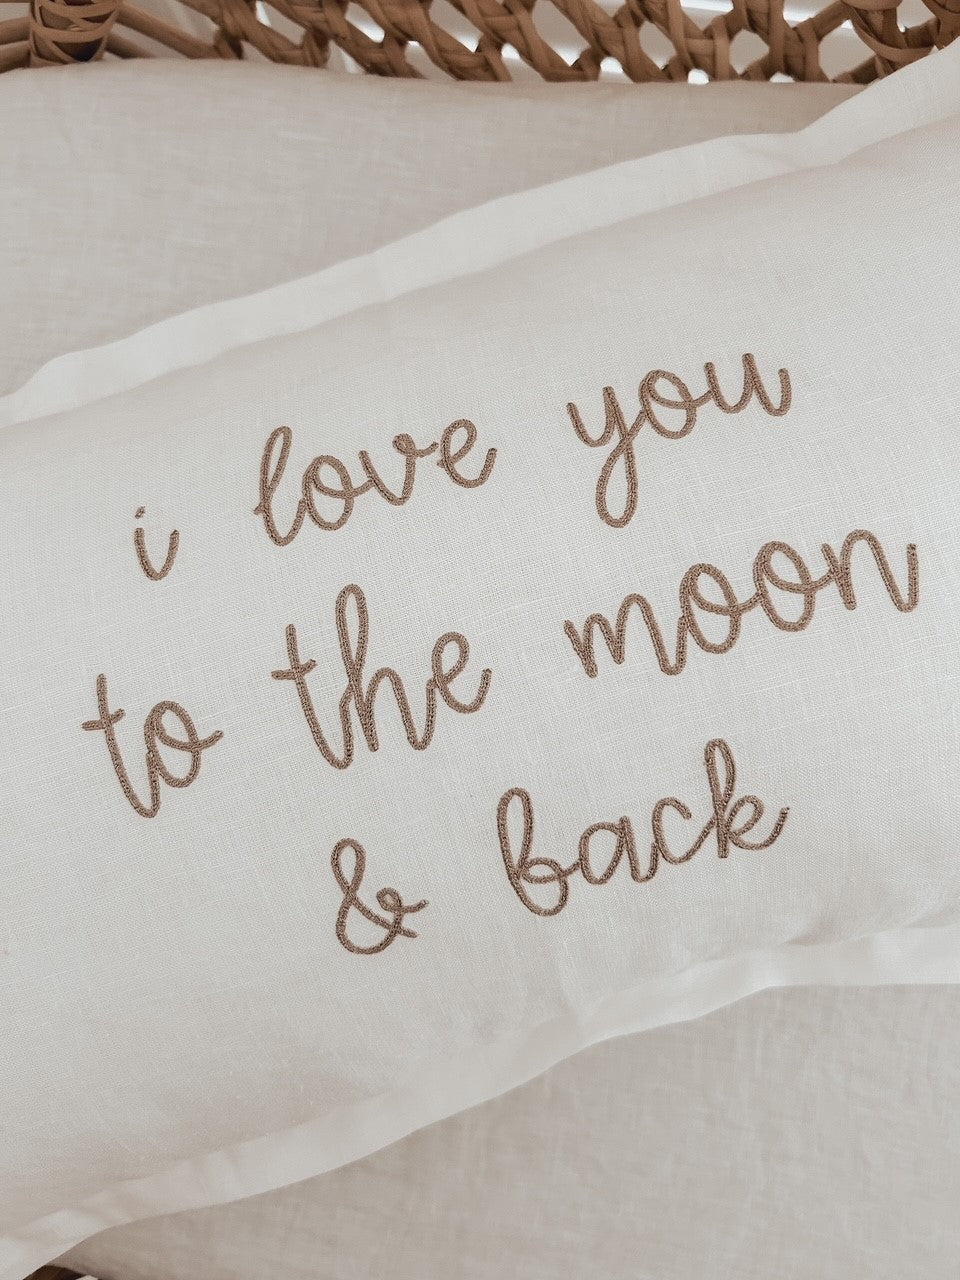 i love you
to the moon
& back